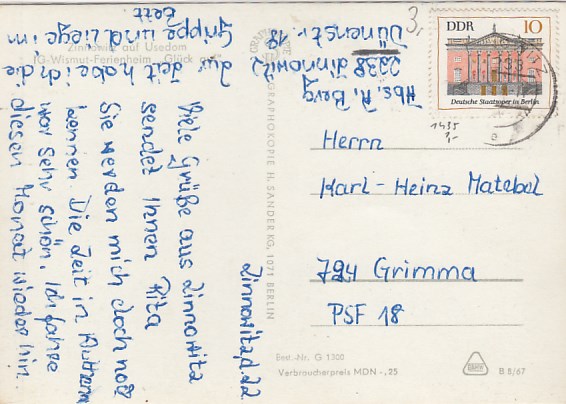 Zinnowitz auf Usedom
IG-Wismut-Ferienheim „Glück auf"
Zinnowitz, d. 22
Viele Grüße aus Zinnowitz
sendet Ihnen Rita
Sie werden mich doch noch
kennen. Die Zeit in
war sehr schön. Ich fahre
diesen Monat wieder hin.
Zur Zeit habe ich die
Grippe und liege im
Bett
Abs. R. Berg
2238 Zinnowitz
Dünenstr. 18
GRAPHOKOPIE H. SANDER KG, 1071 BERLIN
3,
DDR 10
Deutsche Staatsoper in Berlin
1435
3,-
Herrn
Karl-Heinz Matebel
724 Grimma
PSF 18
Best.-Nr. G 1300
Verbraucherpreis MDN -,25
B 8/67